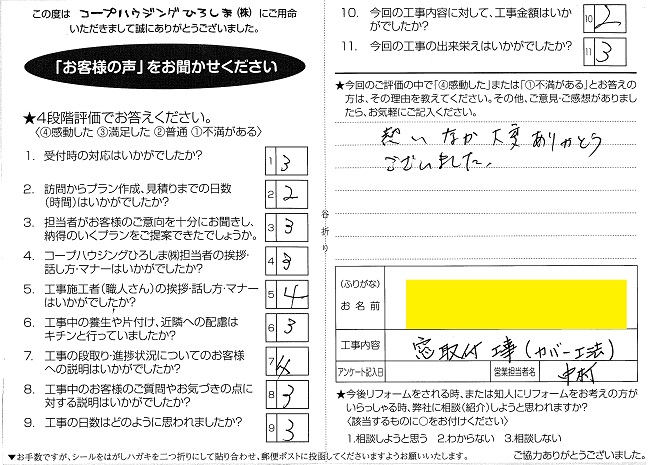 この度は コープハウジングひろしま(株) にご用命
いただきまして誠にありがとうございました。
「お客様の声」をお聞かせください
★4段階評価でお答えください。
〈④感動した ③満足した ②普通 ①不満がある〉
1. 受付時の対応はいかがでしたか?
1 3
2. 訪問からプラン作成、見積りまでの日数
(時間)はいかがでしたか?
2 2
3. 担当者がお客様のご意向を十分にお聞きし、
納得のいくプランをご提案できたでしょうか。
3 3
4. コープハウジングひろしま㈱担当者の挨拶・
話し方・マナーはいかがでしたか?
4 3
5. 工事施工者(職人さん)の挨拶・話し方・マナー
はいかがでしたか?
5 4
6. 工事中の養生や片付け、近隣への配慮は
キチンと行っていましたか?
6 3
7. 工事の段取り・進捗状況についてのお客様
への説明はいかがでしたか?
7 4
8. 工事中のお客様のご質問やお気づきの点に
対する説明はいかがでしたか?
8 3
9. 工事の日数はどのように思われましたか?
9 3
▼お手数ですが、シールをはがしハガキを二つ折りにして貼り合わせ、郵便ポストに投函してくださいますようお願いいたします。
谷折り
10. 今回の工事内容に対して、工事金額はいか
がでしたか?
10 2
11. 今回の工事の出来栄えはいかがでしたか?
11 3
★今回のご評価の中で「④感動した」または「①不満がある」とお答えの
方は、その理由を教えてください。その他、ご意見・ご感想がありまし
たら、お気軽にご記入ください。
大変 ありがとう
ございました。
(ふりがな)
お名前
工事内容
窓取付工事(カバー工法)
アンケート記入日
営業担当者名
中村
★今後リフォームをされる時、または知人にリフォームをお考えの方が
いらっしゃる時、弊社に相談(紹介)しようと思われますか?
〈該当するものに○をお付けください〉
1.相談しようと思う 2.わからない 3.相談しない
ご協力ありがとうございました。